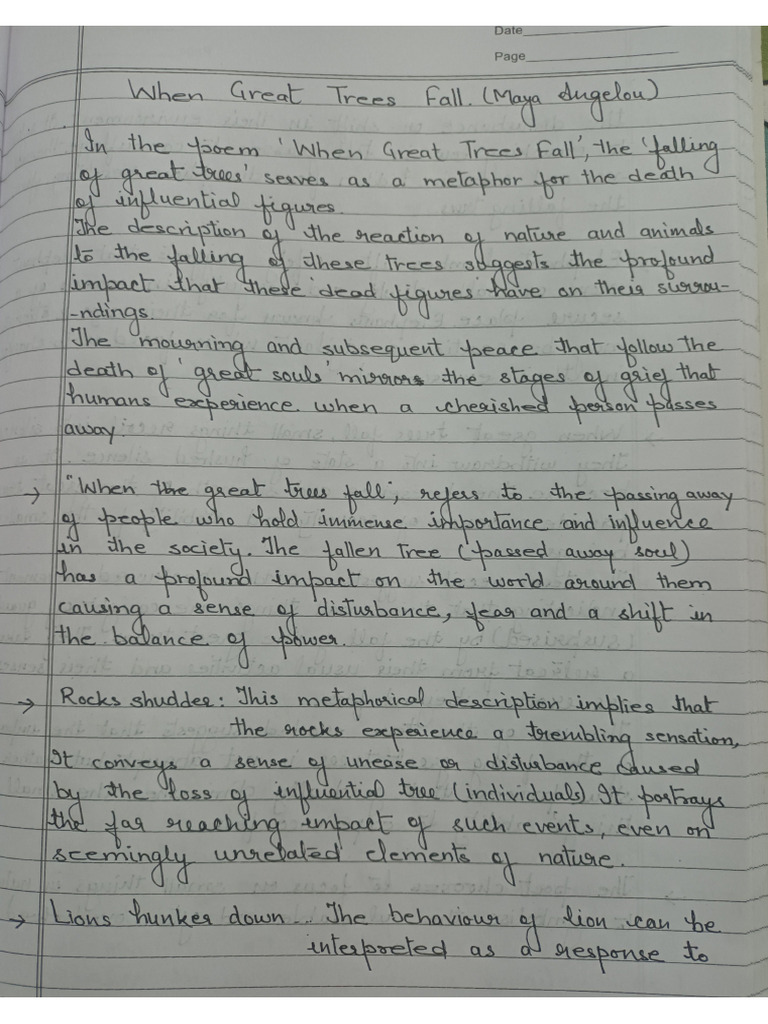 Date
Page
When Great Trees Fall. (Maya Angelou)
In the poem 'When Great Trees Fall', the 'falling
of great trees' serves as a metaphor for the death
of influential figures.
The description of the reaction of nature and animals
to the falling of these trees suggests the profound
impact that these dead figures have on their surrou-
-ndings.
The mourning and subsequent peace that follow the
death of 'great souls' mirrors the stages of grief that
humans experience when a cherished person passes
away.
→ "When the great trees fall", refers to the passing away
of people who hold immense importance and influence
in the society. The fallen tree (passed away soul)
has a profound impact on the world around them
causing a sense of disturbance, fear and a shift in
the balance of power.
→ Rocks shudder: This metaphorical description implies that
the rocks experience a trembling sensation,
It conveys a sense of unease or disturbance caused
by the loss of influential tree (individuals) It portrays
the far reaching impact of such events, even on
seemingly unrelated elements of nature.
→ Lions hunker down... The behaviour of lion can be
interpreted as a response to